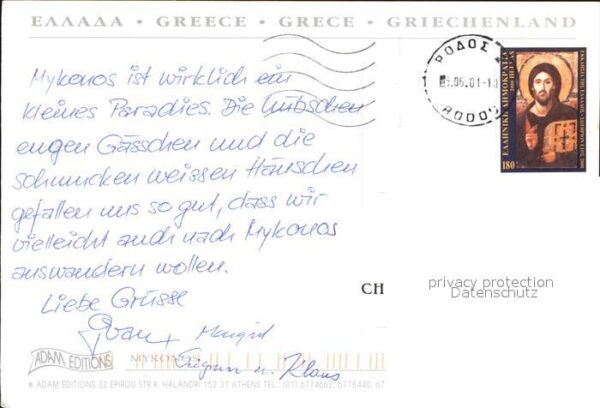 ΕΛΛΑΔΑ • GREECE • GRECE • GRIECHENLAND
Mykonos ist wirklich ein
kleines Paradies. Die hübschen
engen Gässchen und die
schmucken weissen Häuschen
gefallen uns so gut, dass wir
vielleicht auch nach Mykonos
auswandern wollen.
Liebe Grüsse
Margrit
u. Klaus
ΡΟΔΟΣ
.06.01-1
RODOS
ΕΛΛΗΝΙΚΗ ΔΗΜΟΚΡΑΤΙΑ
HELLAS
180
CH
privacy protection
Datenschutz
ADAM EDITIONS
MYKONOS
ADAM EDITIONS 32 EPIROU STR K. HALANDRI 152 31 ATHENS TEL: (01) 6774662, 6778440, 67